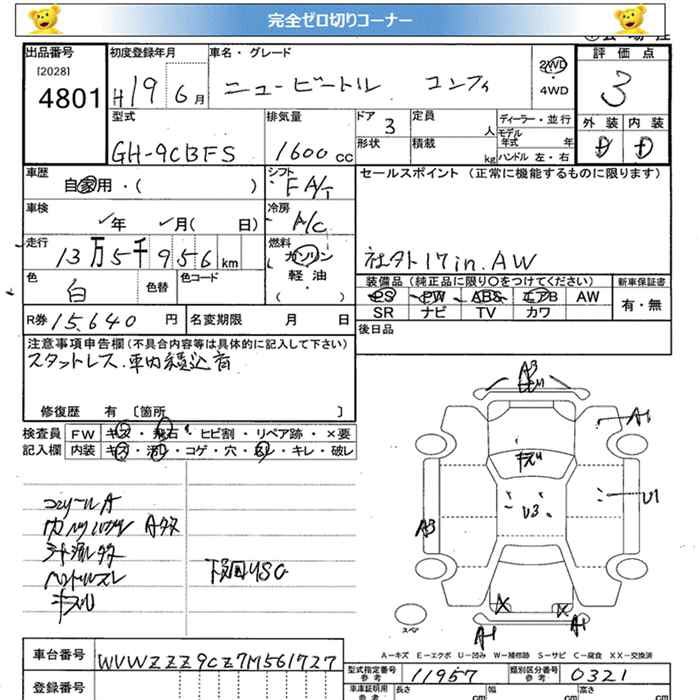 完全ゼロ切りコーナー
出品番号 初度登録年月 車名・グレード 評価点
[2028]
4801 H19 6月 ニュービートル 2WD
・
4WD 3
型式 排気量 ドア 3 定員 人 ディーラー・並行 外装 内装
モデル年式 年
GH-9CBFS 1600cc 形状 積載 kg ハンドル 左・右 D D
車歴 自家用・( ) シフト FA/T セールスポイント (正常に機能するものに限ります)
車検 年 月( 日) 冷房 A/C
走行 13万5千956km 燃料 ガソリン
軽油
(・) 社外17in.AW
色 白 色替 色コード 装備品 (純正品に限り○をつけてください) 新車保証書
PS PW ABS エアB AW 有・無
SR ナビ TV カワ
R券 15,640 円 名変期限 月 日 後日品
注意事項申告欄 (不具合内容等は具体的に記入して下さい)
スタットレス.車内積込有
修復歴 有 〔箇所 〕
検査員 FW キズ・飛石・ヒビ割・リペア跡・×要
記入欄 内装 キズ・汚レ・コゲ・穴・・キレ・破レ
A3
A1
キズU
U3
U1
A3
ハンドルスレ
キズU
下回りSC
X X
A1 A1
スペア
A-キズ E-エクボ U-凹み W-補修跡 S-サビ C-腐食 XX-交換済
車台番号 WVWZZZ9CZ7M561727
型式指定番号 参考 11957 類別区分番号 参考 0321
登録番号 車庫証明用 参考 長さ cm 幅 cm 高さ cm